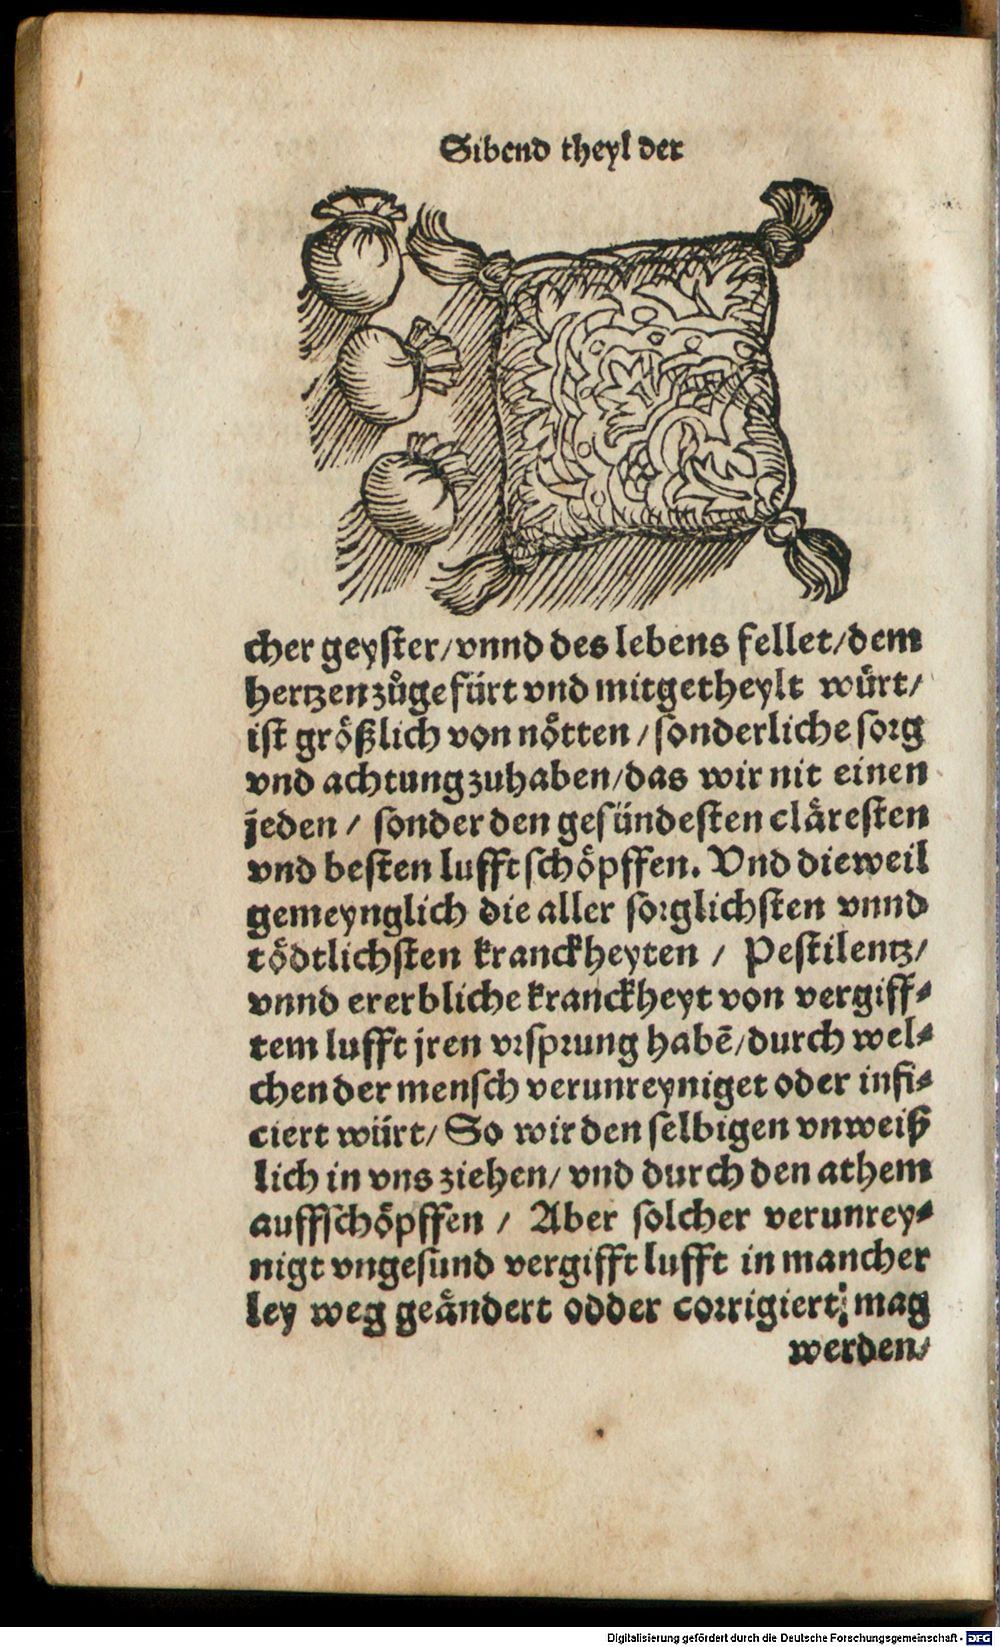 Sibend theyl der
cher geyster/vnnd des lebens fellet/dem
hertzen zůgefürt vnd mitgetheylt würt/
ist größlich von nötten/sonderliche sorg
vnd achtung zuhaben/das wir nit einen
jeden/ sonder den gesündesten cläresten
vnd besten lufft schöpffen. Vnd dieweil
gemeynglich die aller sorglichsten vnnd
tödtlichsten kranckheyten/ Pestilentz/
vnnd ererbliche kranckheyt von vergiff⸗
tem lufft jren vrsprung habē/durch wel⸗
chen der mensch verunreyniget oder infi⸗
ciert würt/ So wir den selbigen vnweiß
lich in vns ziehen/ vnd durch den athem
auffschöpffen/ Aber solcher verunrey⸗
nigt vngesund vergifft lufft in mancher
ley weg geändert odder corrigiert mag
werden/
Digitalisierung gefördert durch die Deutsche Forschungsgemeinschaft - DFG